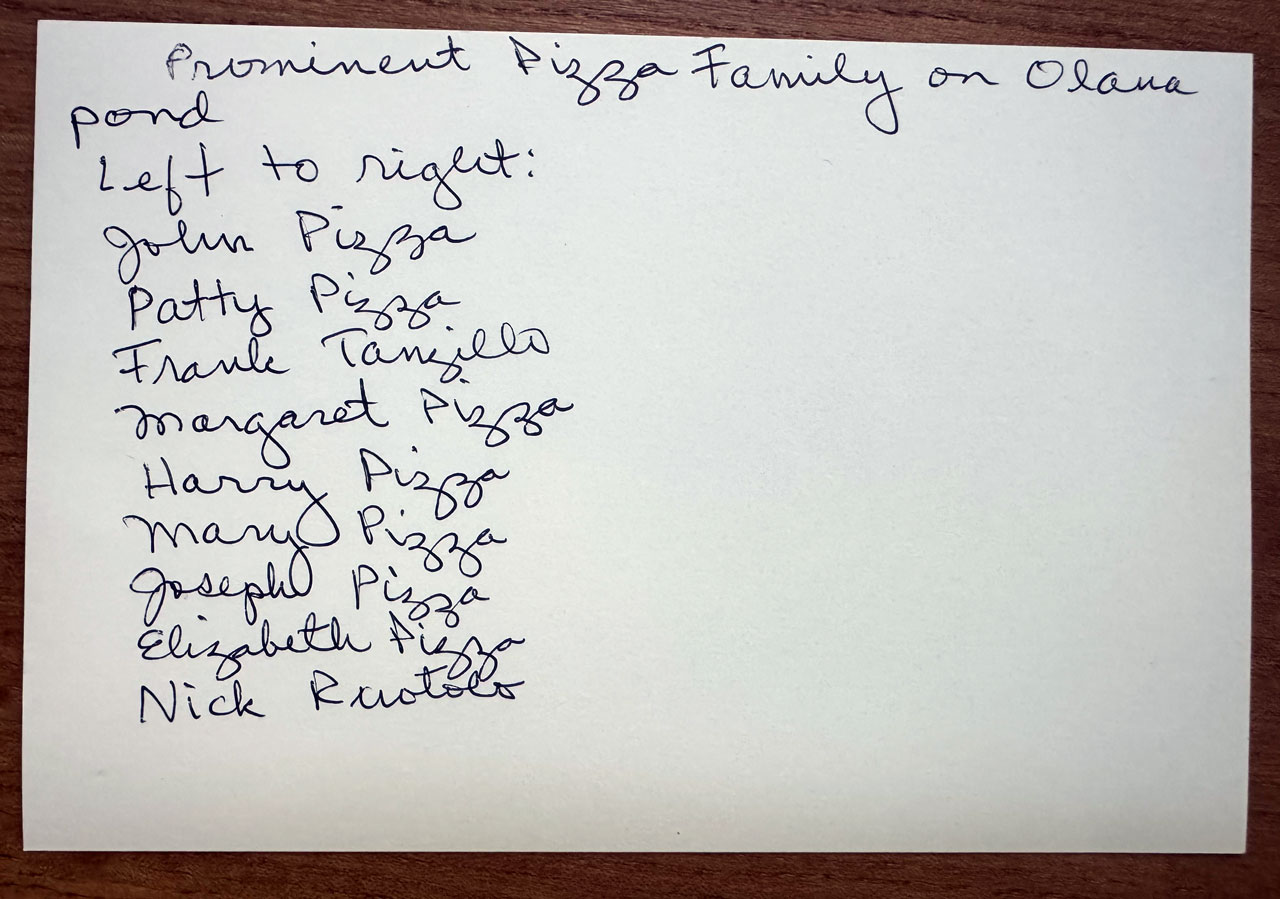 Prominent Pizza Family on Olana
pond
Left to right:
John Pizza
Patty Pizza
Frank Tanzillo
Margaret Pizza
Harry Pizza
Mary Pizza
Joseph Pizza
Elizabeth Pizza
Nick Ruotolo